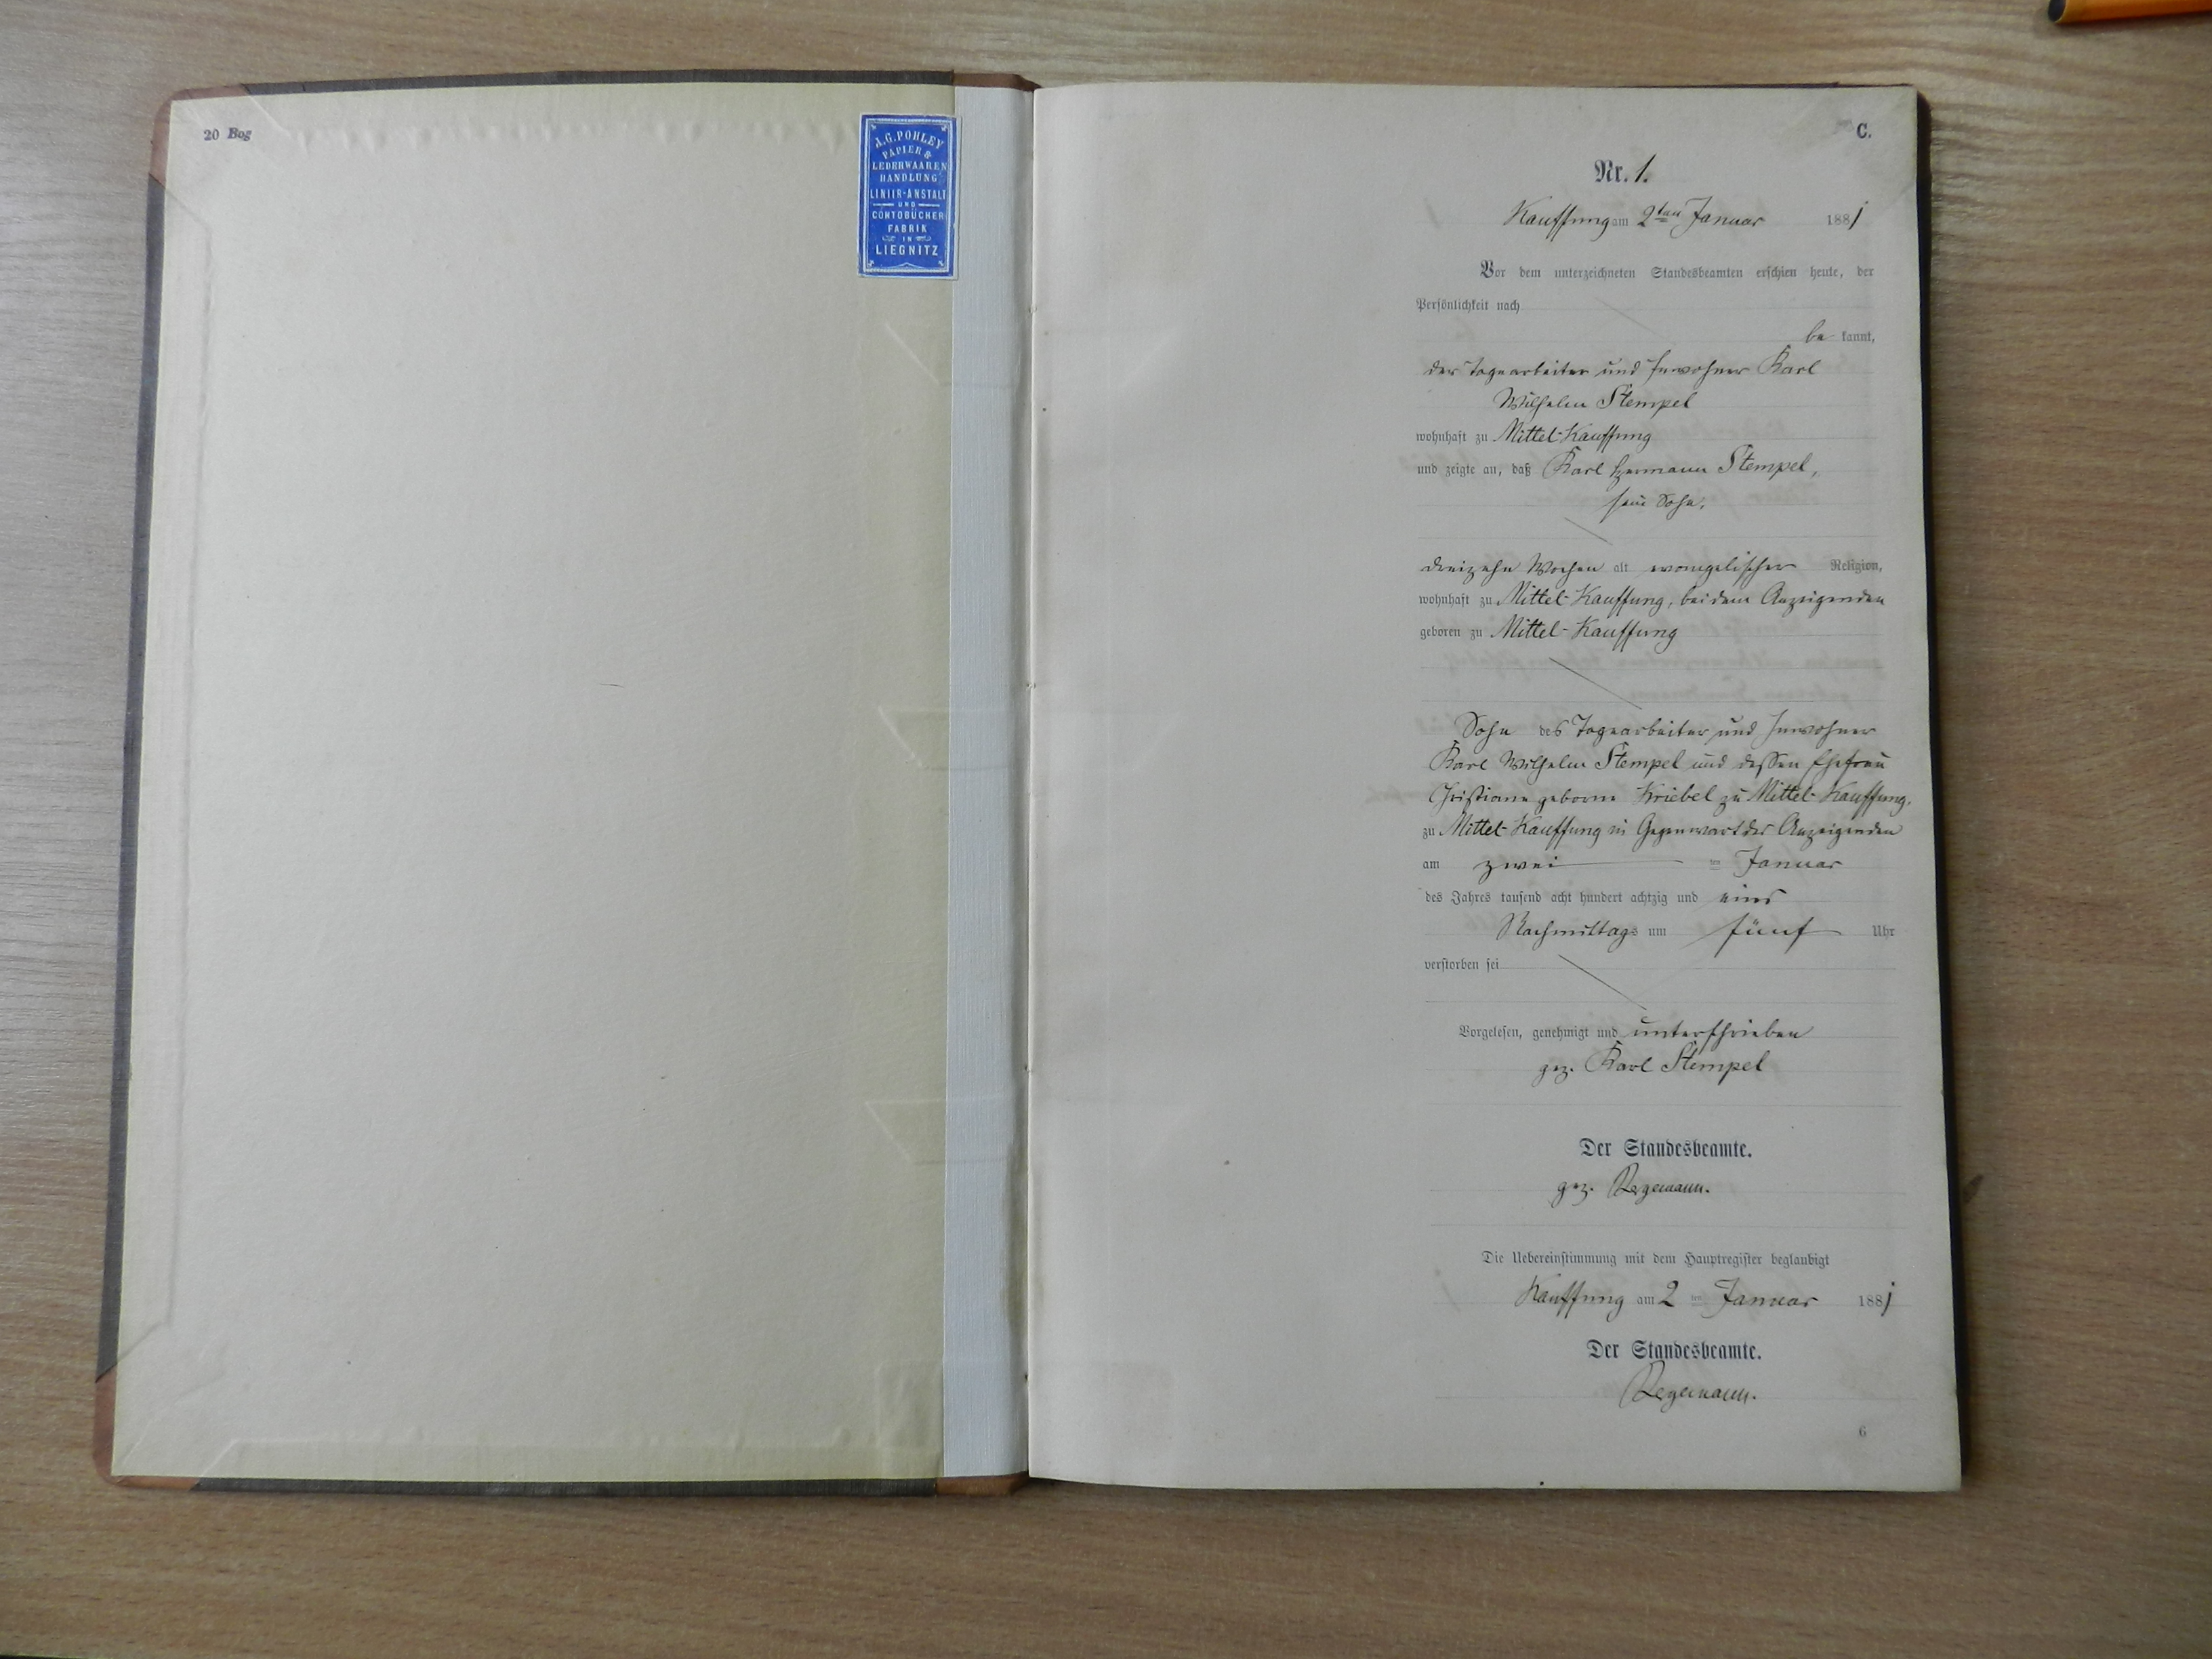 20 Bog
J.G. POHLEY
PAPIER &
LEDERWAAREN
HANDLUNG
LINIIR-ANSTALT
UND
CONTOBÜCHER
FABRIK
IN
LIEGNITZ
C.
Nr. 1.
Kauffung am 2ten Januar 1881
Vor dem unterzeichneten Standesbeamten erschien heute, der
Persönlichkeit nach
be kannt,
der Tagearbeiter und Inwohner Karl
Wilhelm Stempel
wohnhaft zu Mittel-Kauffung
und zeigte an, daß Karl Hermann Stempel,
sein Sohn,
dreizehn Wochen alt evangelischer Religion,
wohnhaft zu Mittel-Kauffung, bei dem Anzeigenden
geboren zu Mittel-Kauffung
Sohn des Tagearbeiter und Inwohner
Karl Wilhelm Stempel und dessen Ehefrau
Christiane geborne Kriebel zu Mittel-Kauffung,
zu Mittel-Kauffung in Gegenwart des Anzeigenden
am zwei ten Januar
des Jahres tausend acht hundert achtzig und eins
Nachmittags um fünf Uhr
verstorben sei
Vorgelesen, genehmigt und unterschrieben
gez. Karl Stempel
Der Standesbeamte.
gez. Regemann.
Die Uebereinstimmung mit dem Hauptregister beglaubigt
Kauffung am 2 ten Januar 1881
Der Standesbeamte.
Regemann.
6